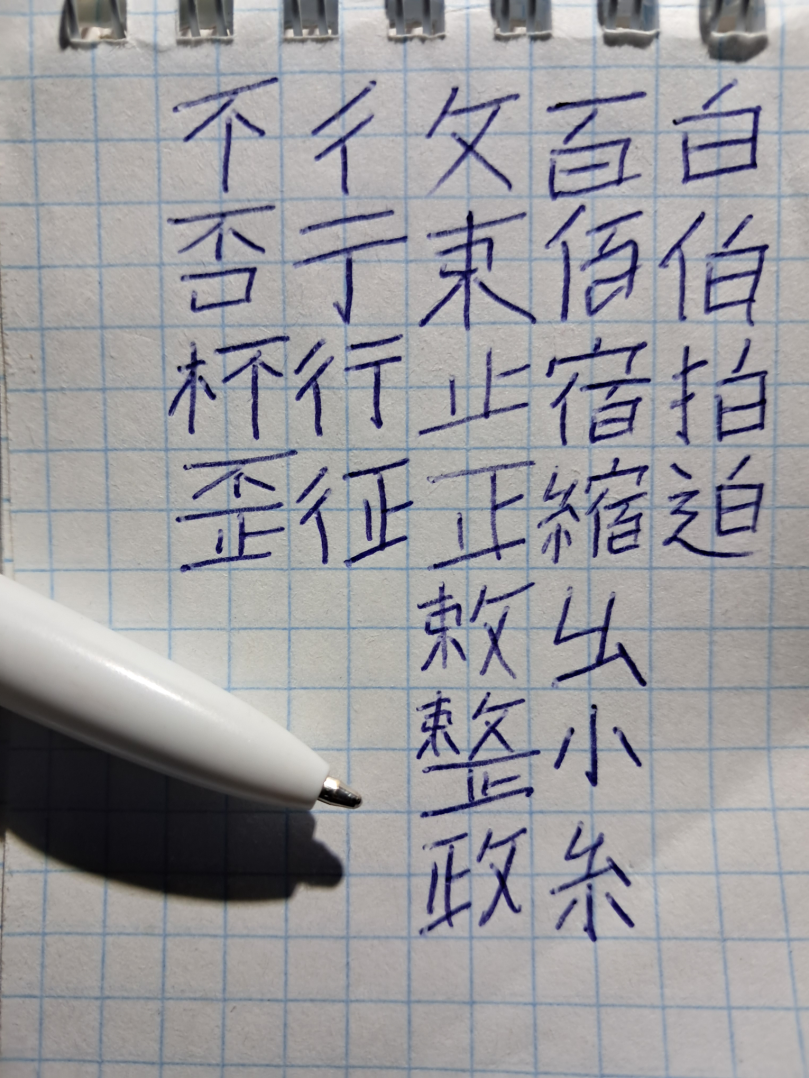 白伯拍迫
百佰宿縮幺小糸
攵束止正敕整政
彳亍行征
不否杯歪